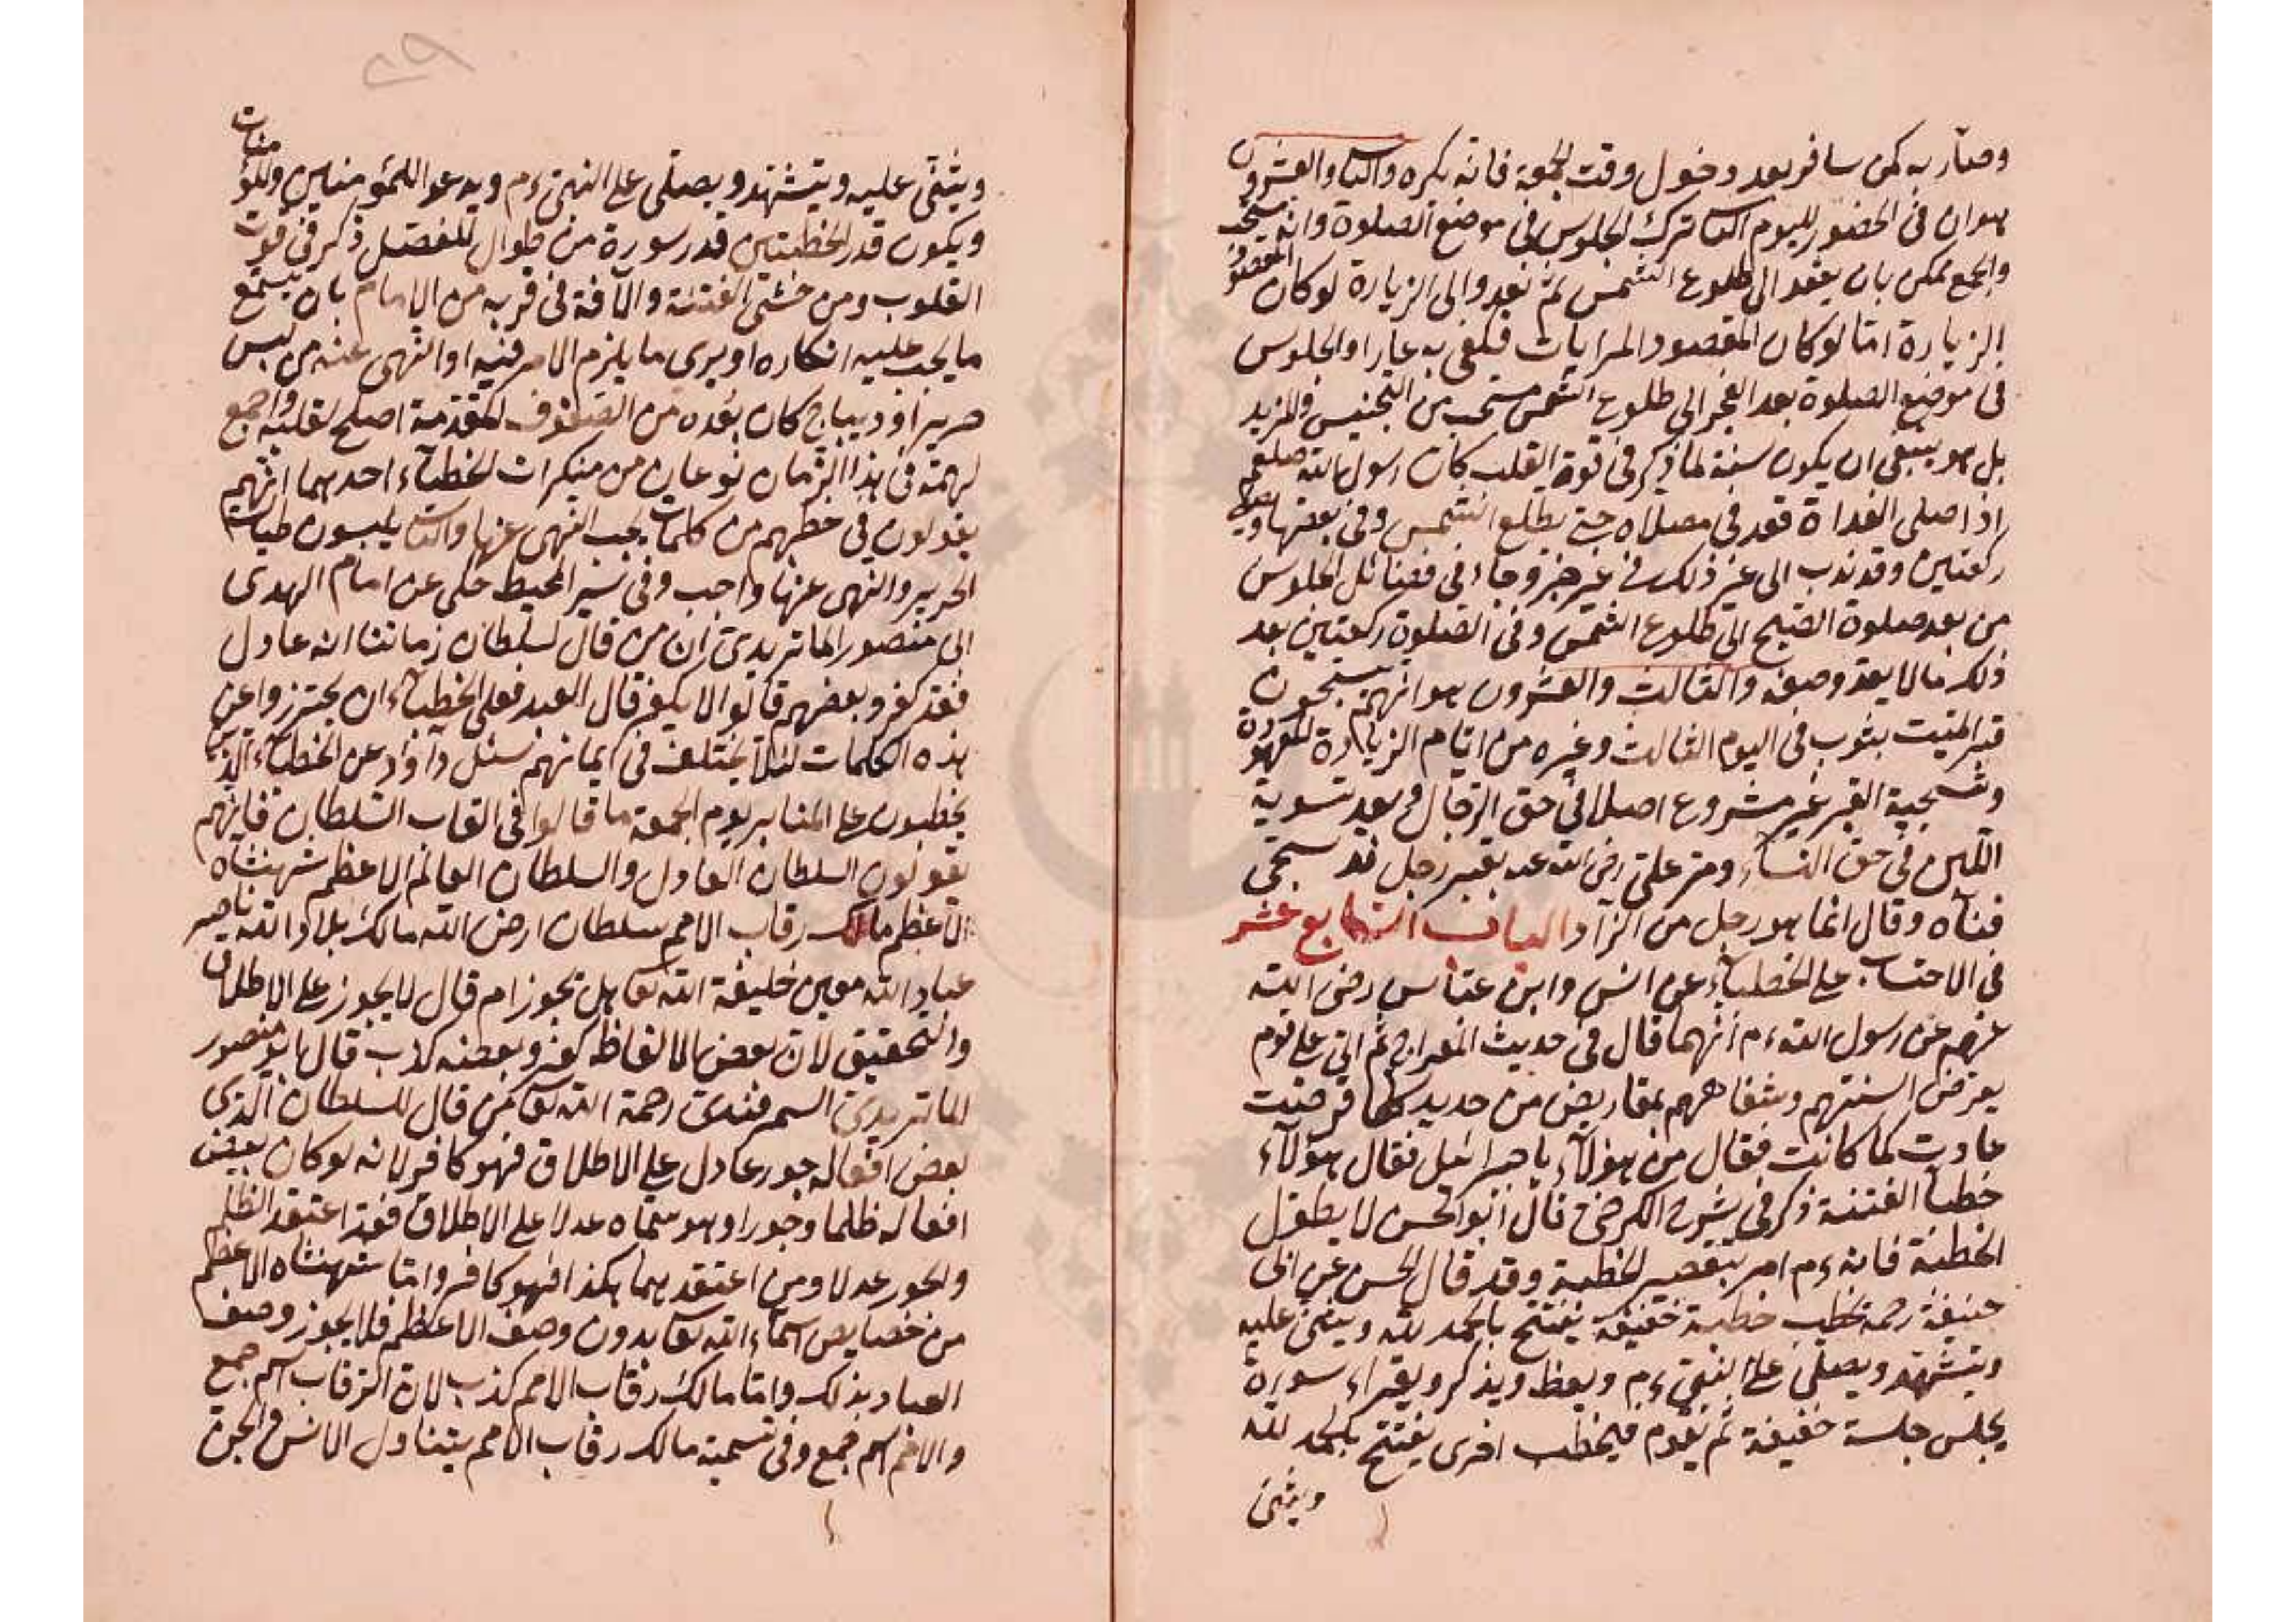 وصار به كمن سافر بعد دخول وقت الجمعة فانه يكره والثا والعشرون
هو ان فى الحضور لليوم الثا ترك الجلوس فى موضع الصلوة وانه مستحب
والجمع ممكن بان يقعد الى طلوع الشمس ثم يغدو الى الزيارة لو كان المقصود
الزيارة اما لو كان المقصود المرايات فيكفى به عارا والجلوس
فى موضع الصلوة بعد الفجر الى طلوع الشمس مستحب من التجنيس والمزيد
بل هو ينبغى ان يكون سنة لما ذكر فى قوة القلب كان رسول الله صلعم
اذا صلى الغداة قعد فى مصلاه حتى يطلع الشمس وفى بعضها ويصلى
ركعتين وقد ندب الى غير ذلك فى غير خبر وجاء فى فضائل الجلوس
من بعد صلوة الصبح الى طلوع الشمس وفى الصلوة ركعتين بعد
ذلك ما لا يعد وصفه والثالث والعشرون هو انهم يسجون
قبر الميت بثوب فى اليوم الثالث وغيره من ايام الزيارة المعهودة
وتسجية القبر غير مشروع اصلا فى حق الرجال وبعد تسوية
اللبن فى حق النساء ومر على رضى الله عنه بقبر رجل قد سجى
فنحاه وقال انما هو رجل من الزاد الباب السابع عشر
فى الاحتساب على الخطباء عن انس وابن عباس رضى الله
عنهم عن رسول الله ءم انهما قال فى حديث المعراج ثم اتى على قوم
يقرض السنتهم وشفاههم بمقاريض من حديد كلما قرضت
عادت كما كانت فقال من هؤلاء يا جبرائيل فقال هؤلاء
خطبأ الفتنة ذكر فى شرح الكرخى قال ابو الحسن لا يطول
الخطبة فانه ءم امر بتقصير الخطبة وقد قال الحسن عن ابى
حنيفة رحمه يخطب خطبة خفيفة يفتتح بالحمد لله ويثنى عليه
ويتشهد ويصلى على النبى ءم ويعظ ويذكر ويقراء سورة
يجلس جلسة خفيفة ثم يقوم فيخطب اخرى يفتتح بالحمد لله
ويثنى
ويثنى عليه ويتشهد ويصلى على النبى ءم ويدعو اللمؤمنين وللمؤمنات
ويكون قدر الخطبتين قدر سورة من طوال المفصل ذكر فى قوت
القلوب ومن خشى الفتنة والآفة فى قربه من الامام بان يستمع
ما يجب عليه انكاره او يرى ما يلزم الامر فيه او النهى عنه من لبس
حرير او ديباج كان بعده من الصفوف المقدمة اصلح لقلبه واجمع
لهمته فى هذا الزمان نوعان من منكرات الخطباء احدهما انهم
يقولون فى خطبهم من كلمات يجب النهى عنها والثا يلبسون طيات
الحرير والنهى عنها واجب وفى سير المحيط حكى عن امام الهدى
ابى منصور الماتريدى ان من قال لسلطان زماننا انه عادل
فقد كفر وبعضهم قالوا لا يكفر قال العبد فعلى الخطباء ان يحترزوا عن
هذه الكلمات لئلا يختلف فى ايمانهم سئل داود عن الخطباء الذين
يخطبون على المنابر يوم الجمعة ما قالوا فى القاب السلطان فانهم
يقولون السلطان العادل والسلطان العالم الاعظم شهنشاه
الاعظم مالك رقاب الامم سلطان ارض الله مالك بلاد الله ناصر
عباد الله معين خليفة الله تعا هل تجوز ام قال لا يجوز على الاطلاق
والتحقيق لان بعض الالفاظ كفر وبعضه كذب قال ابو منصور
الماتريدى السمرقندى رحمة الله تعا من قال للسلطان الذى
بعض افعاله جور عادل على الاطلاق فهو كافر لانه لو كان بعض
افعاله ظلما وجورا وهو سماه عدلا على الاطلاق فقد اعتقد الظلم
والجور عدلا ومن اعتقدهما هكذا فهو كافر واما شهنشاه الاعظم
من خصايص اسماء الله تعا بدون وصف الاعظم فلا يجوز وصف
العباد بذلك واما مالك رقاب الامم كذب لان الرقاب اسم جمع
والامم اسم جمع وفى تسمية مالك رقاب الامم يتناول الانس والجن